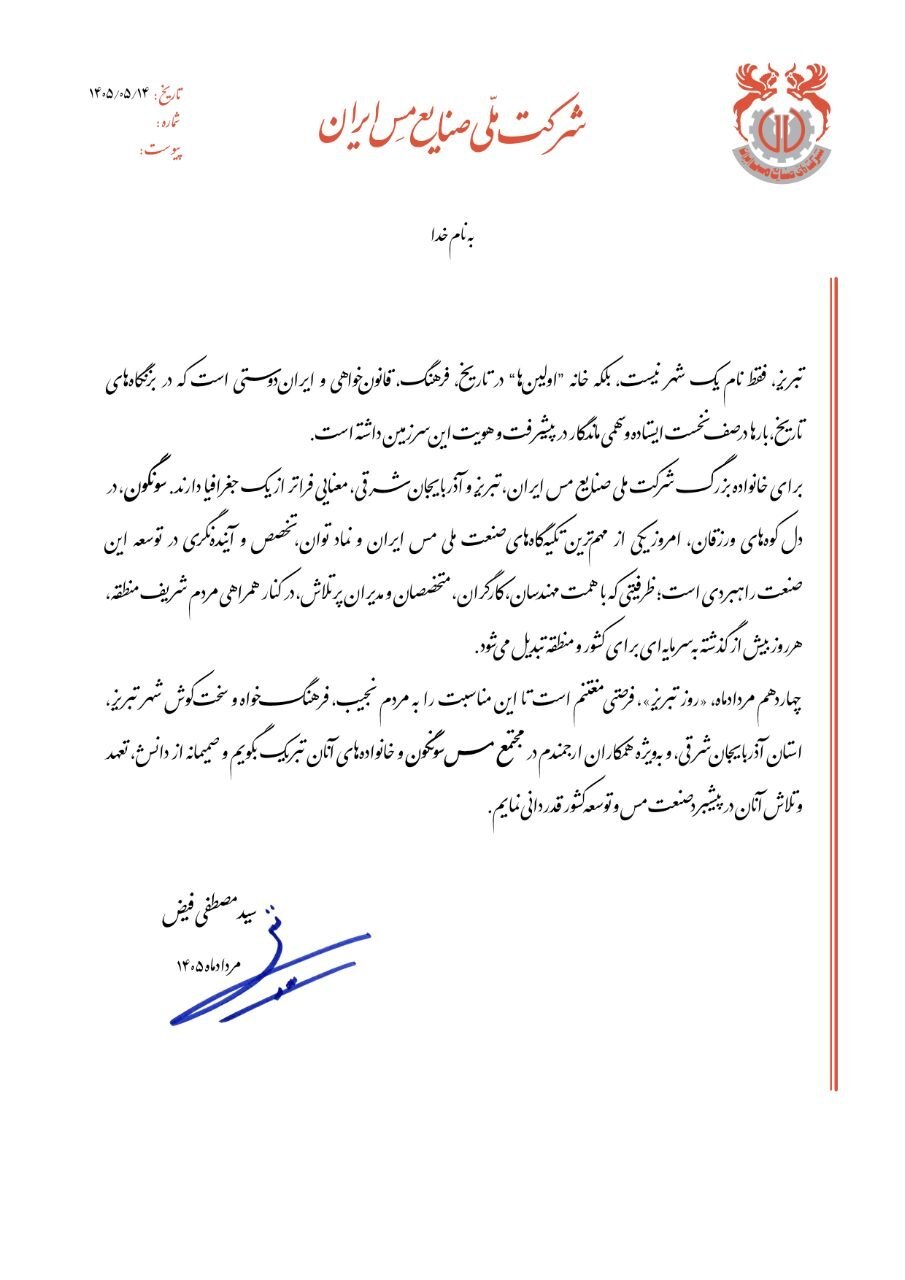 شرکت ملّی صنایع مس ایران
تاریخ: ۱۴۰۵/۰۵/۱۴
شماره:
پیوست:
شرکت ملی صنایع مس ایران
به نام خدا
تبریز، فقط نام یک شهر نیست، بلکه خانه "اولین‌ها" در تاریخ، فرهنگ، قانون‌خواهی و ایران‌دوستی است که در بزنگاه‌های
تاریخ، بارها در صف نخست ایستاده و سهمی ماندگار در پیشرفت و هویت این سرزمین داشته است.
برای خانواده بزرگ شرکت ملی صنایع مس ایران، تبریز و آذربایجان شرقی، معنایی فراتر از یک جغرافیا دارند. سونگون، در
دل کوه‌های ورزقان، امروز یکی از مهم‌ترین تکیه‌گاه‌های صنعت ملی مس ایران و نماد توان، تخصص و آینده‌نگری در توسعه این
صنعت راهبردی است؛ ظرفیتی که با همت مهندسان، کارگران، متخصصان و مدیران پرتلاش، در کنار همراهی مردم شریف منطقه،
هر روز بیش از گذشته به سرمایه‌ای برای کشور و منطقه تبدیل می‌شود.
چهاردهم مردادماه، «روز تبریز»، فرصتی مغتنم است تا این مناسبت را به مردم نجیب، فرهنگ‌خواه و سخت‌کوش شهر تبریز،
استان آذربایجان شرقی، و به‌ویژه همکاران ارجمندم در مجتمع مس سونگون و خانواده‌های آنان تبریک بگویم و صمیمانه از دانش، تعهد
و تلاش آنان در پیشبرد صنعت مس و توسعه کشور قدردانی نمایم.
سید مصطفی فیض
مردادماه ۱۴۰۵